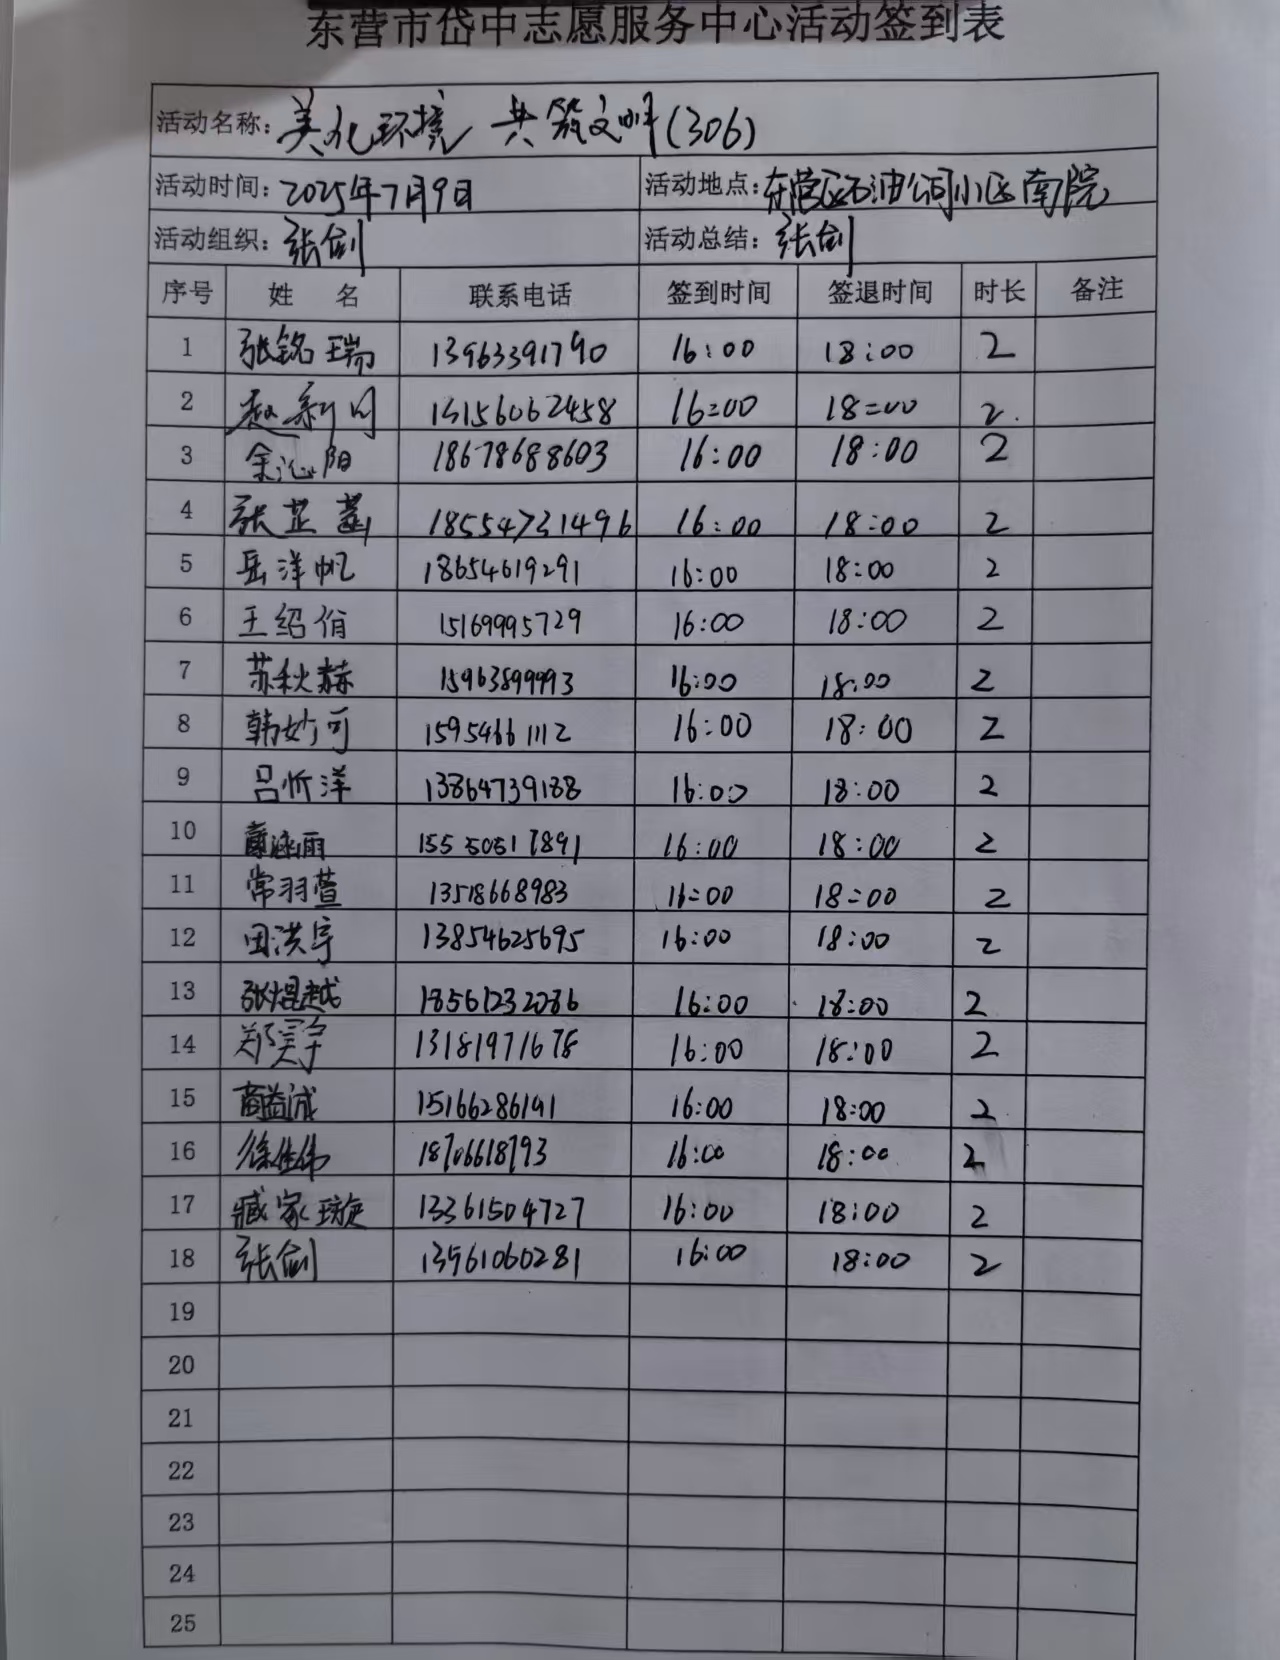 东营市岱中志愿服务中心活动签到表
活动名称: 美化环境 共筑文明(306)
活动时间: 2025年7月9日 活动地点: 东营区石油公司小区南院
活动组织: 张剑 活动总结: 张剑
序号 姓 名 联系电话 签到时间 签退时间 时长 备注
1 张铭瑞 13963391790 16:00 18:00 2
2 赵新同 13156062458 16:00 18:00 2.
3 余沁阳 18678688603 16:00 18:00 2
4 张芷菡 18554731496 16:00 18:00 2
5 岳洋帆 18654619291 16:00 18:00 2
6 王绍俏 15169995729 16:00 18:00 2
7 苏秋赫 15963899993 16:00 18:00 2
8 韩妙可 15954661112 16:00 18:00 2
9 吕忻洋 13864739188 16:00 18:00 2
10 涵雨 15550517891 16:00 18:00 2
11 常羽萱 13518668983 16:00 18:00 2
12 田洪宇 13854625695 16:00 18:00 2
13 张焜越 18561232086 16:00 18:00 2
14 郑昊宇 13181971678 16:00 18:00 2
15 商益诚 15166286191 16:00 18:00 2
16 徐佳伟 18706618793 16:00 18:00 2
17 臧家璇 13361504727 16:00 18:00 2
18 张剑 13561060281 16:00 18:00 2
19
20
21
22
23
24
25